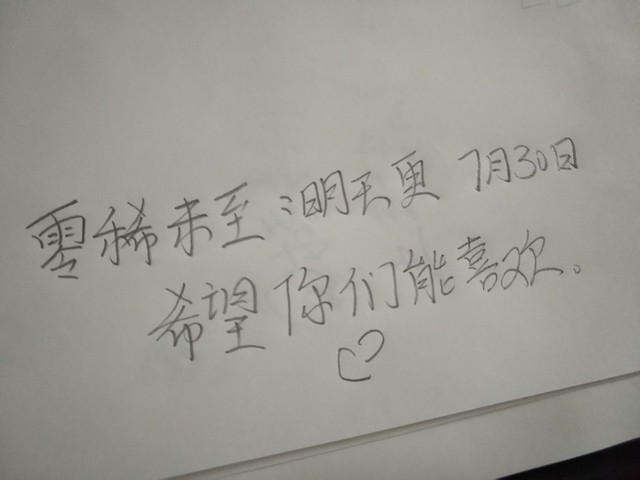 零稀未至:明天更 7月30日
希望你们能喜欢。